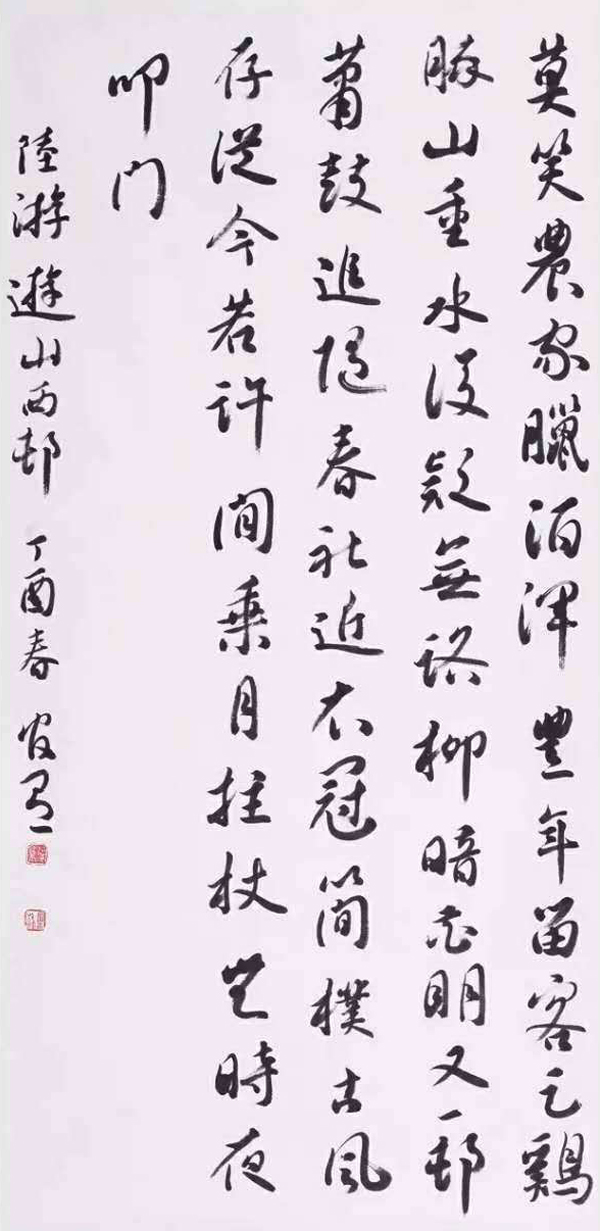 莫笑農家臘酒渾豐年留客足鷄
豚山重水復疑無路柳暗花明又一邨
蕭鼓追隨春社近衣冠簡樸古風
存從今若許間乘月拄杖無時夜
叩门
陸游遊山西邨 丁酉春